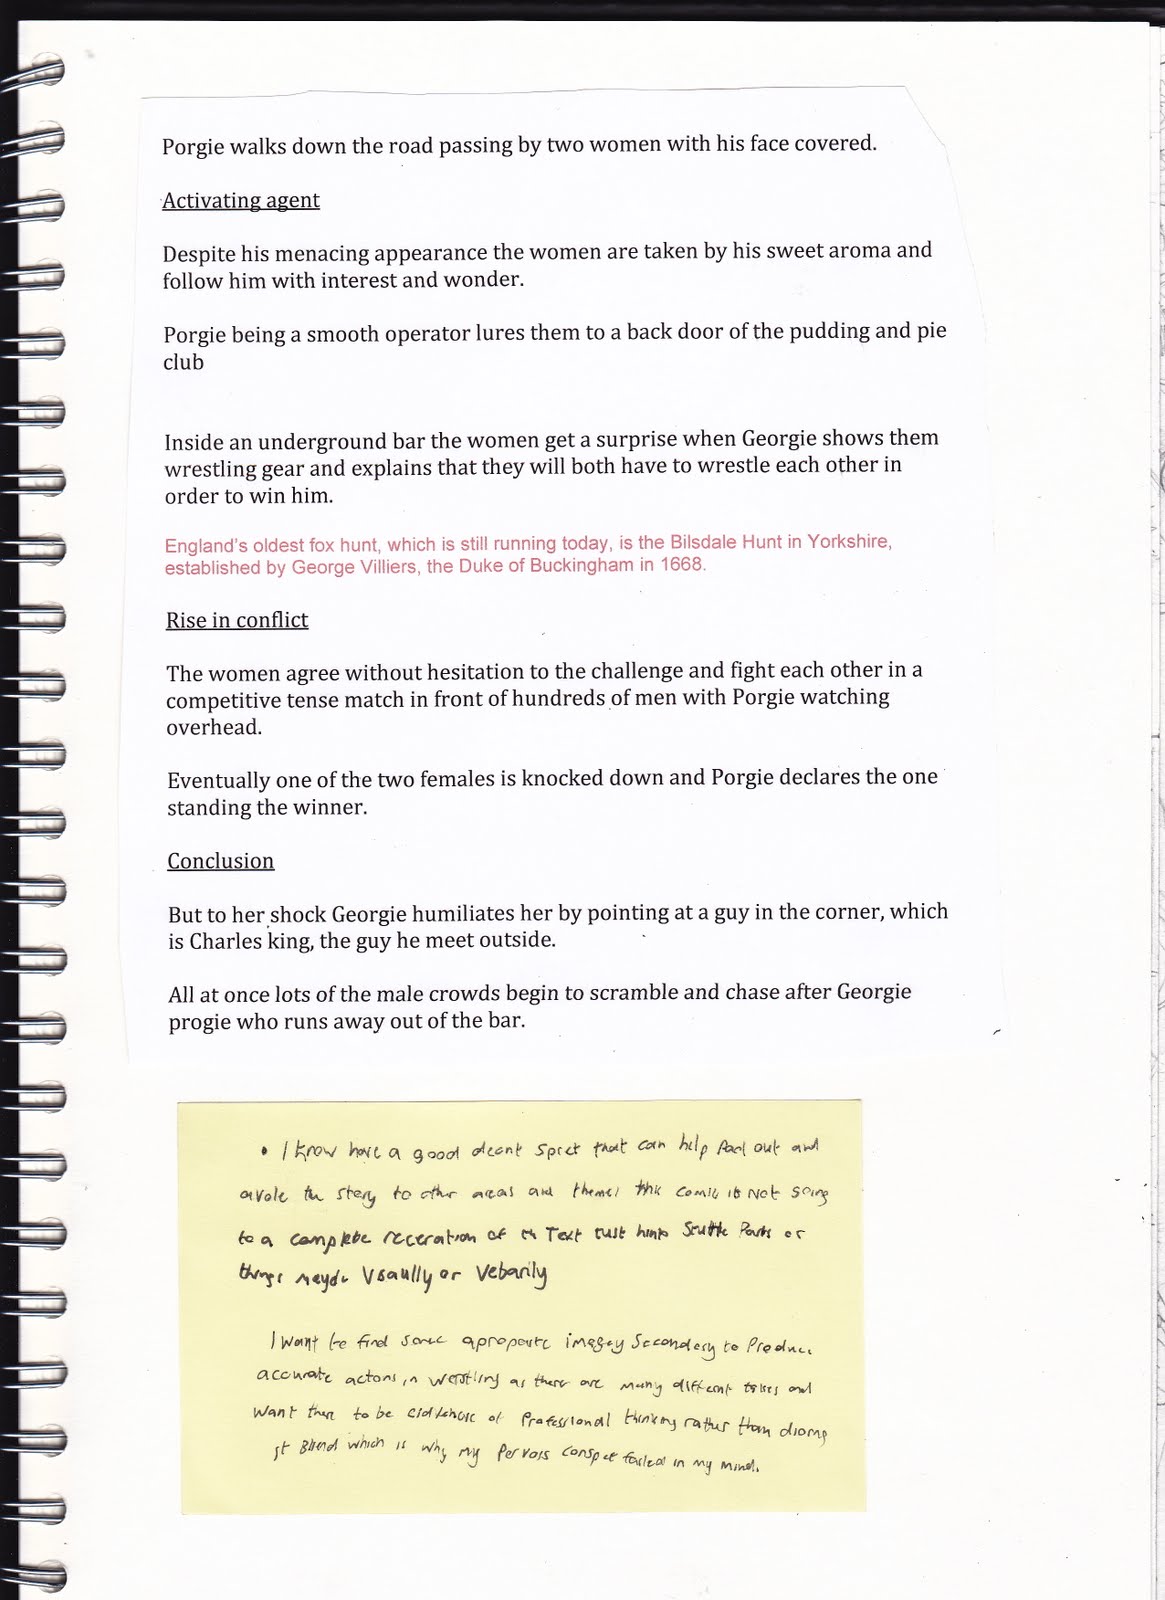 Porgie walks down the road passing by two women with his face covered.
Activating agent
Despite his menacing appearance the women are taken by his sweet aroma and
follow him with interest and wonder.
Porgie being a smooth operator lures them to a back door of the pudding and pie
club
Inside an underground bar the women get a surprise when Georgie shows them
wrestling gear and explains that they will both have to wrestle each other in
order to win him.
England's oldest fox hunt, which is still running today, is the Bilsdale Hunt in Yorkshire,
established by George Villiers, the Duke of Buckingham in 1668.
Rise in conflict
The women agree without hesitation to the challenge and fight each other in a
competitive tense match in front of hundreds of men with Porgie watching
overhead.
Eventually one of the two females is knocked down and Porgie declares the one
standing the winner.
Conclusion
But to her shock Georgie humiliates her by pointing at a guy in the corner, which
is Charles king, the guy he meet outside.
All at once lots of the male crowds begin to scramble and chase after Georgie
progie who runs away out of the bar.
• I know have a good that can help out and
the story to other areas and this comic is Not going
to a complete of Text Parts or
things Vsaully or Vebarily
I want to find some imagey Secondery to Produce
accurate actons in as there are many different and
want them to be of Professional thinking rather than
Blind which is why my failed in my mind.